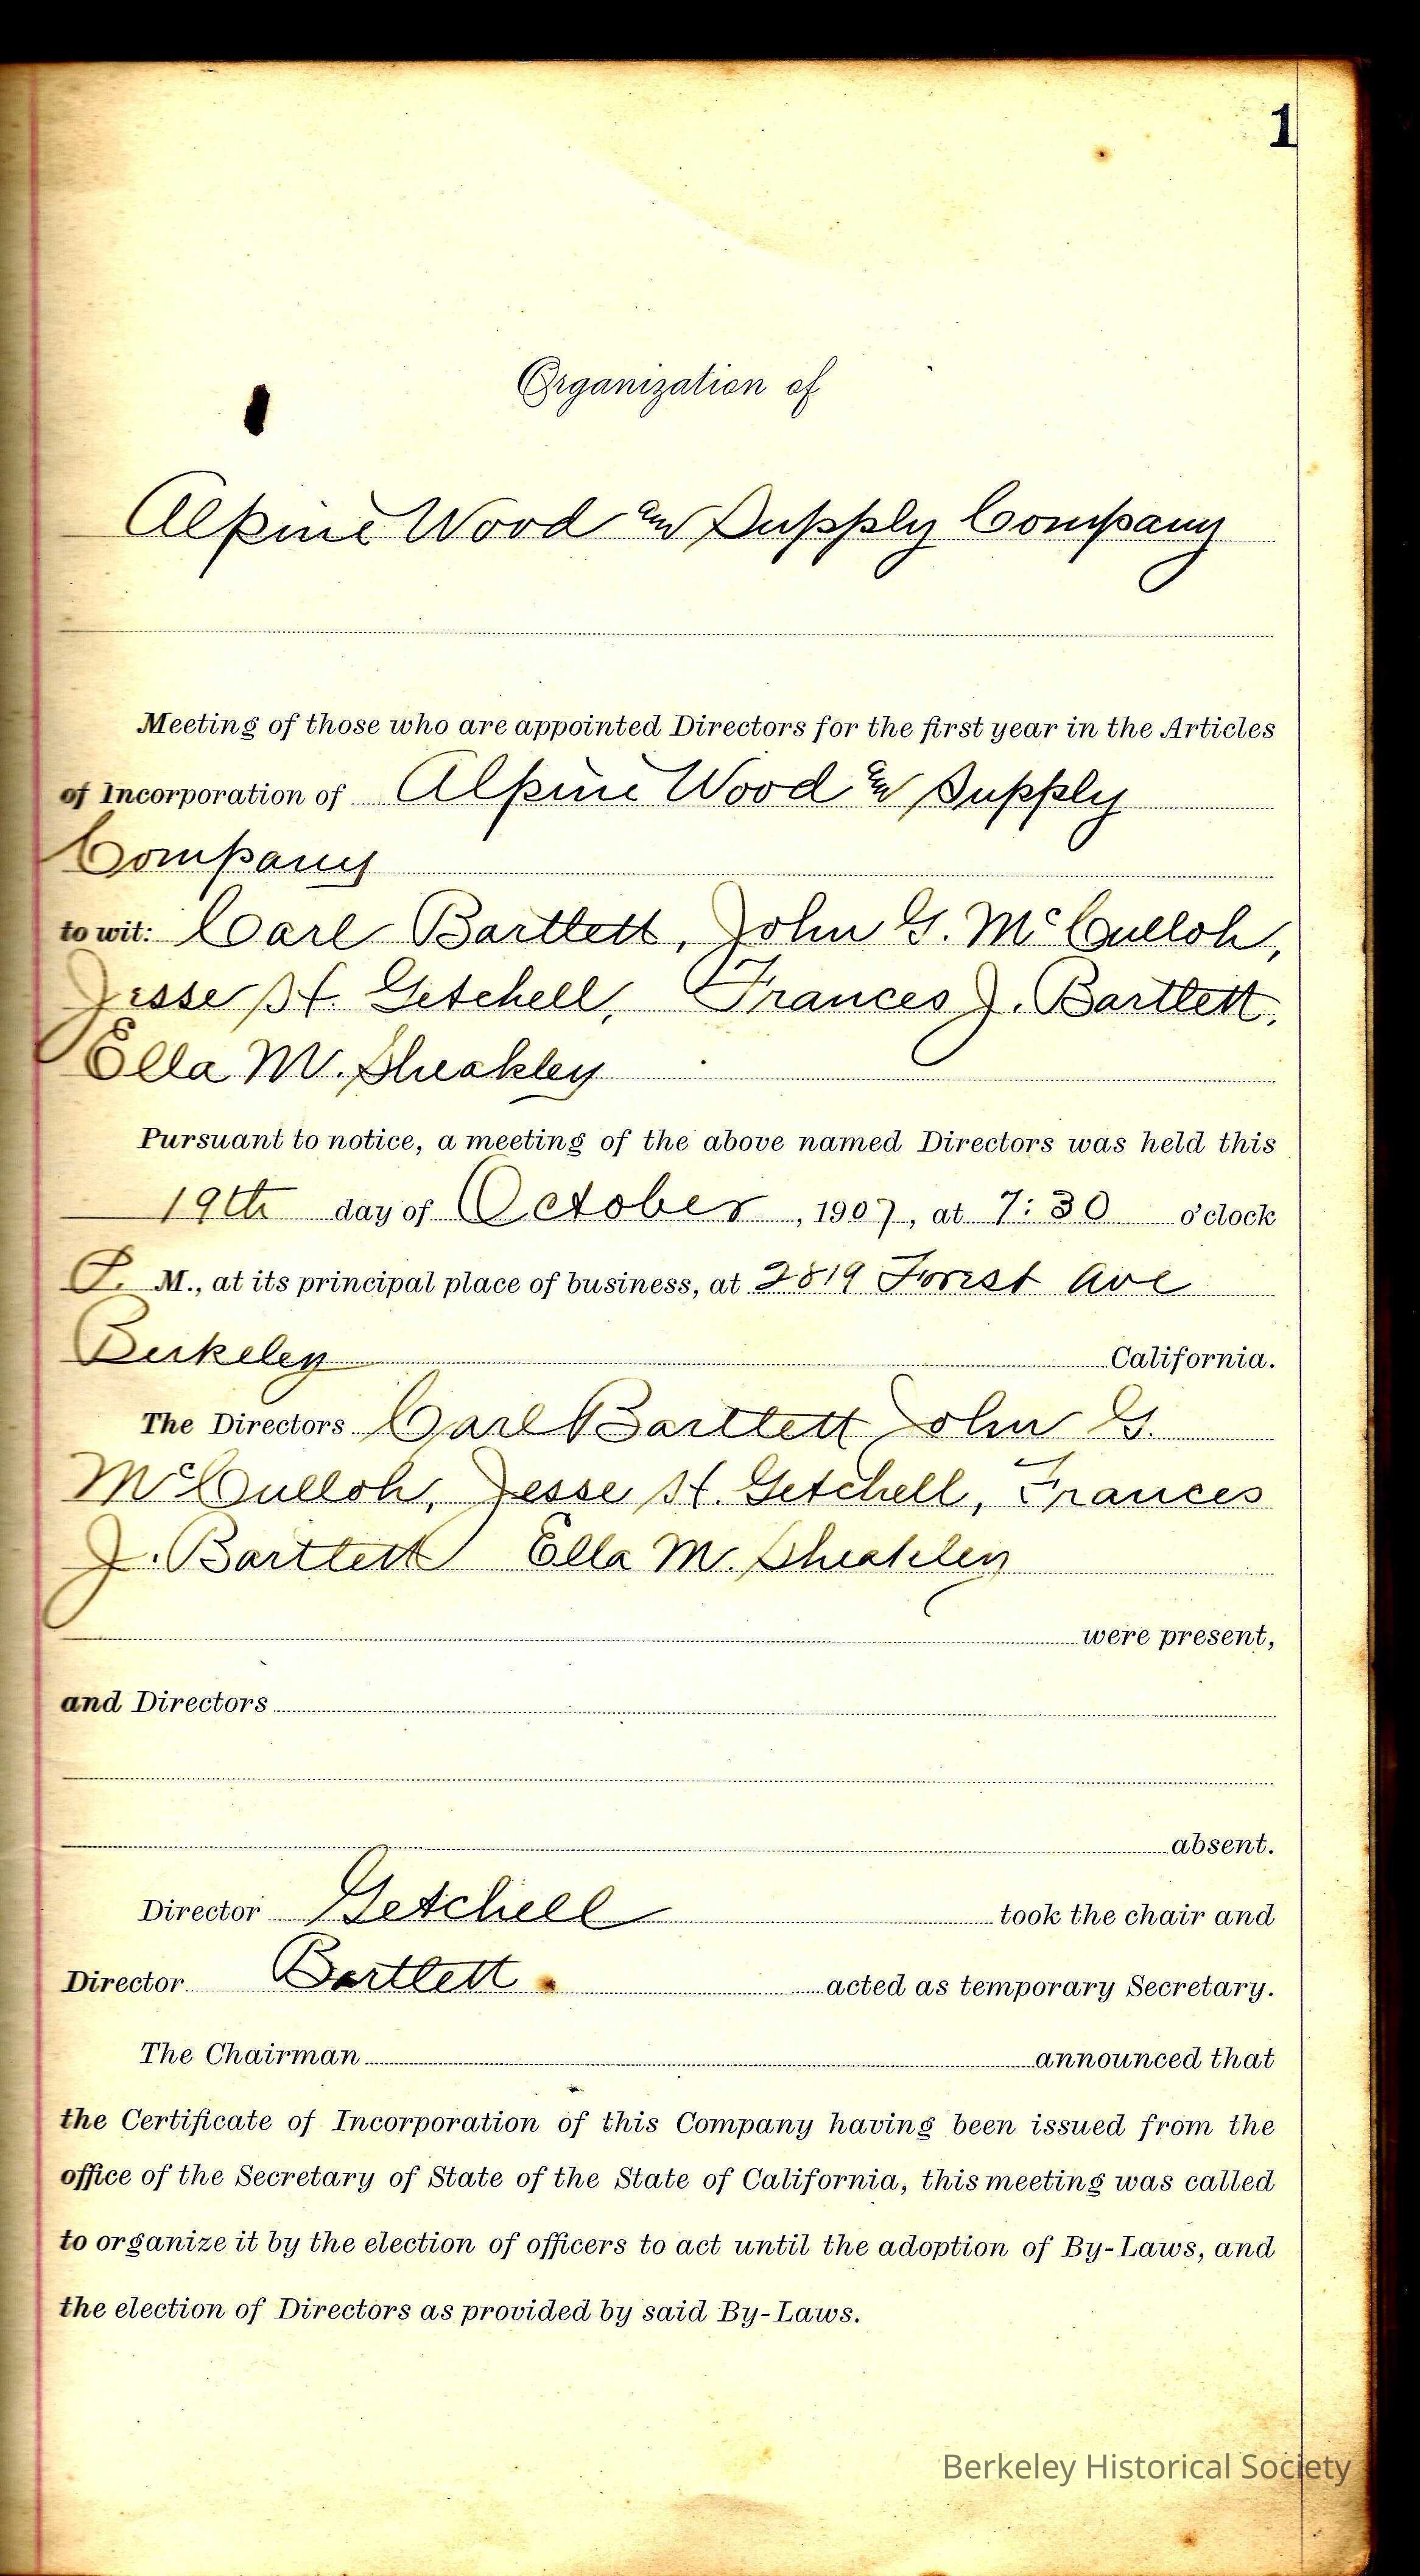 1
Organization of
Alpine Wood and Supply Company
Meeting of those who are appointed Directors for the first year in the Articles
of Incorporation of Alpine Wood and Supply
Company
to wit: Carl Bartlett, John G. McCulloh,
Jesse H. Getchell, Frances J. Bartlett,
Ella M. Sheakley
Pursuant to notice, a meeting of the above named Directors was held this
19th day of October, 1907, at 7:30 o'clock
P. M., at its principal place of business, at 2819 Forest Ave
Berkeley California.
The Directors Carl Bartlett John G.
McCulloh, Jesse H. Getchell, Frances
J. Bartlett Ella M. Sheakley
were present,
and Directors
absent.
Director Getchell took the chair and
Director Bartlett acted as temporary Secretary.
The Chairman announced that
the Certificate of Incorporation of this Company having been issued from the
office of the Secretary of State of the State of California, this meeting was called
to organize it by the election of officers to act until the adoption of By-Laws, and
the election of Directors as provided by said By-Laws.
Berkeley Historical Society